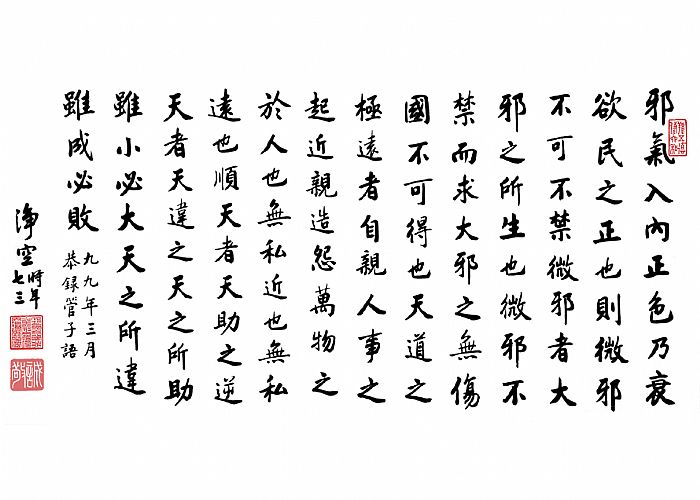 邪氣入內正色乃衰
欲民之正也則微邪
不可不禁微邪者大
邪之所生也微邪不
禁而求大邪之無傷
國不可得也天道之
極遠者自親人事之
起近親造怨萬物之
於人也無私近也無私
遠也順天者天助之逆
天者天違之天之所助
雖小必大天之所違
雖成必敗
九九年三月
恭録管子語
淨空時年七三